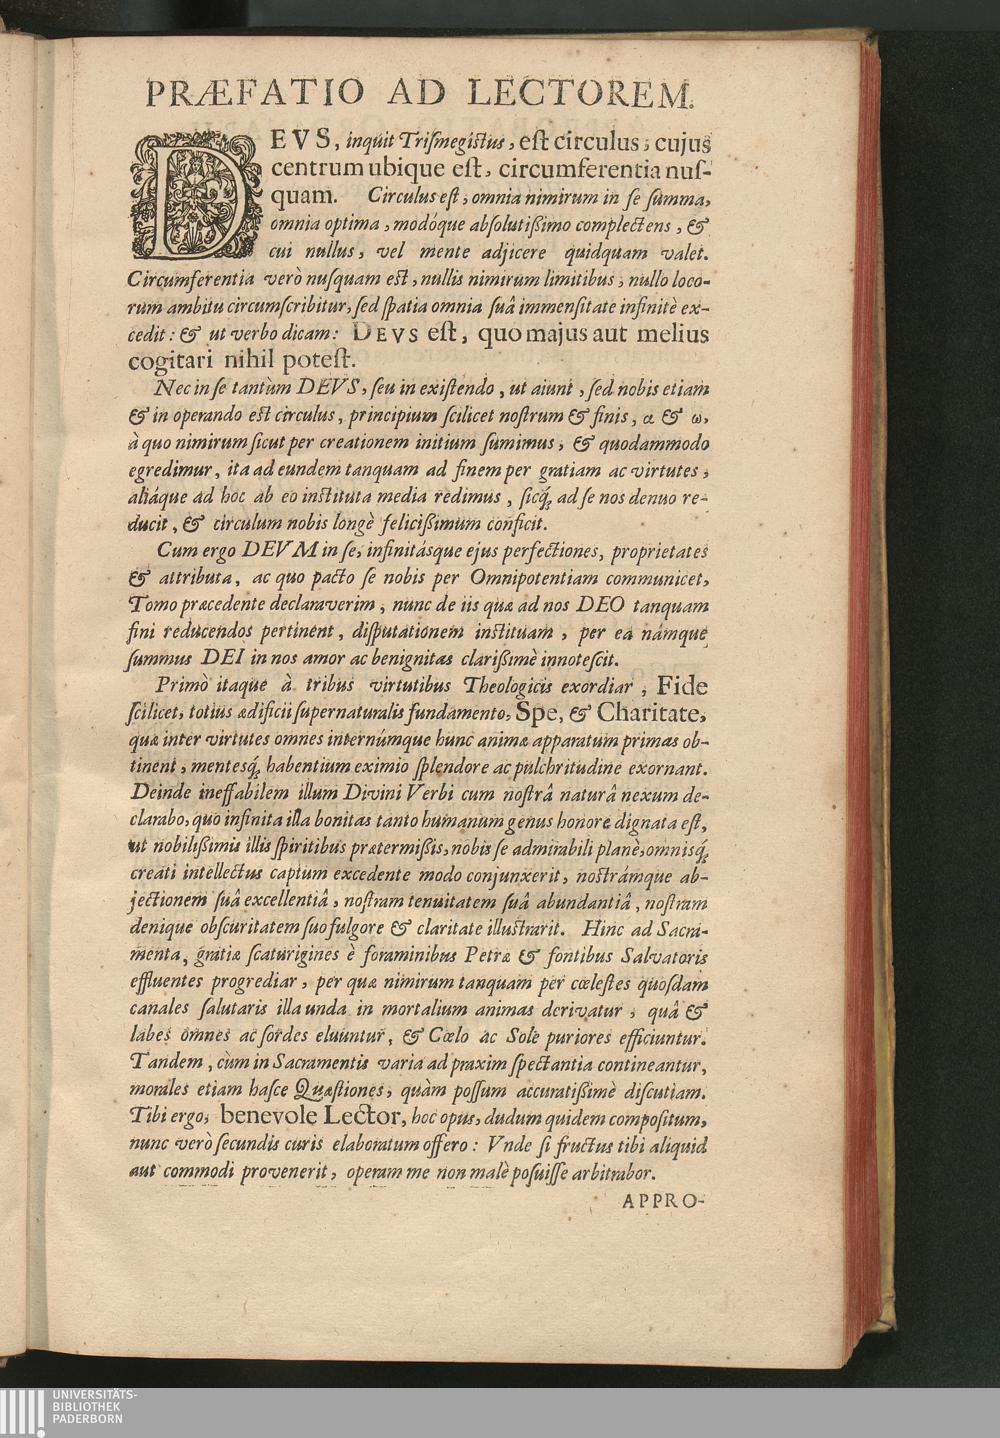 PRÆFATIO AD LECTOREM.
DEVS, inquit Triſmegistus, eſt circulus, cujus
centrum ubique eſt, circumferentia nuſ-
quam. Circulus eſt, omnia nimirum in ſe ſumma,
omnia optima, modóque abſolutißimo complectens, &
cui nullus, vel mente adjicere quidquam valet.
Circumferentia verò nuſquam eſt, nullis nimirum limitibus, nullo loco-
rum ambitu circumſcribitur, ſed ſpatia omnia ſuâ immenſitate infinitè ex-
cedit: & ut verbo dicam: DEVS eſt, quo majus aut melius
cogitari nihil poteſt.
Nec in ſe tantùm DEVS, ſeu in exiſtendo, ut aiunt, ſed nobis etiam
& in operando eſt circulus, principium ſcilicet noſtrum & finis, α & ω,
à quo nimirum ſicut per creationem initium ſumimus, & quodammodo
egredimur, ita ad eundem tanquam ad finem per gratiam ac virtutes,
aliáque ad hoc ab eo inſtituta media redimus, ſicq́; ad ſe nos denuo re-
ducit, & circulum nobis longè felicißimum conficit.
Cum ergo DEVM in ſe, infinitásque ejus perfectiones, proprietates
& attributa, ac quo pacto ſe nobis per Omnipotentiam communicet,
Tomo præcedente declaraverim, nunc de iis quæ ad nos DEO tanquam
fini reducendos pertinent, diſputationem inſtituam, per ea námque
ſummus DEI in nos amor ac benignitas clarißimè innoteſcit.
Primò itaque à tribus virtutibus Theologicis exordiar, Fide
ſcilicet, totius ædificii ſupernaturalis fundamento, Spe, & Charitate,
quæ inter virtutes omnes internúmque hunc animæ apparatum primas ob-
tinent, mentesq́; habentium eximio ſplendore ac pulchritudine exornant.
Deinde ineffabilem illum Divini Verbi cum noſtrâ naturâ nexum de-
clarabo, quo infinita illa bonitas tanto humanum genus honore dignata eſt,
ut nobilißimis illis ſpiritibus prætermißis, nobis ſe admirabili planè, omnisq́;
creati intellectus captum excedente modo conjunxerit, noſtrámque ab-
jectionem ſuâ excellentiâ, noſtram tenuitatem ſuâ abundantiâ, noſtram
denique obſcuritatem ſuo fulgore & claritate illuſtrarit. Hinc ad Sacra-
menta, gratiæ ſcaturigines è foraminibus Petræ & fontibus Salvatoris
effluentes progrediar, per quæ nimirum tanquam per cœleſtes quoſdam
canales ſalutaris illa unda in mortalium animas derivatur, quâ &
labes omnes ac ſordes eluuntur, & Cœlo ac Sole puriores efficiuntur.
Tandem, cùm in Sacramentis varia ad praxim ſpectantia contineantur,
morales etiam haſce Quæſtiones, quàm poſſum accuratißimè diſcutiam.
Tibi ergo, benevole Lector, hoc opus, dudum quidem compoſitum,
nunc verò ſecundis curis elaboratum offero: Vnde ſi fructus tibi aliquid
aut commodi provenerit, operam me non malè poſuiſſe arbitrabor.
APPRO-
UNIVERSITÄTS-
BIBLIOTHEK
PADERBORN